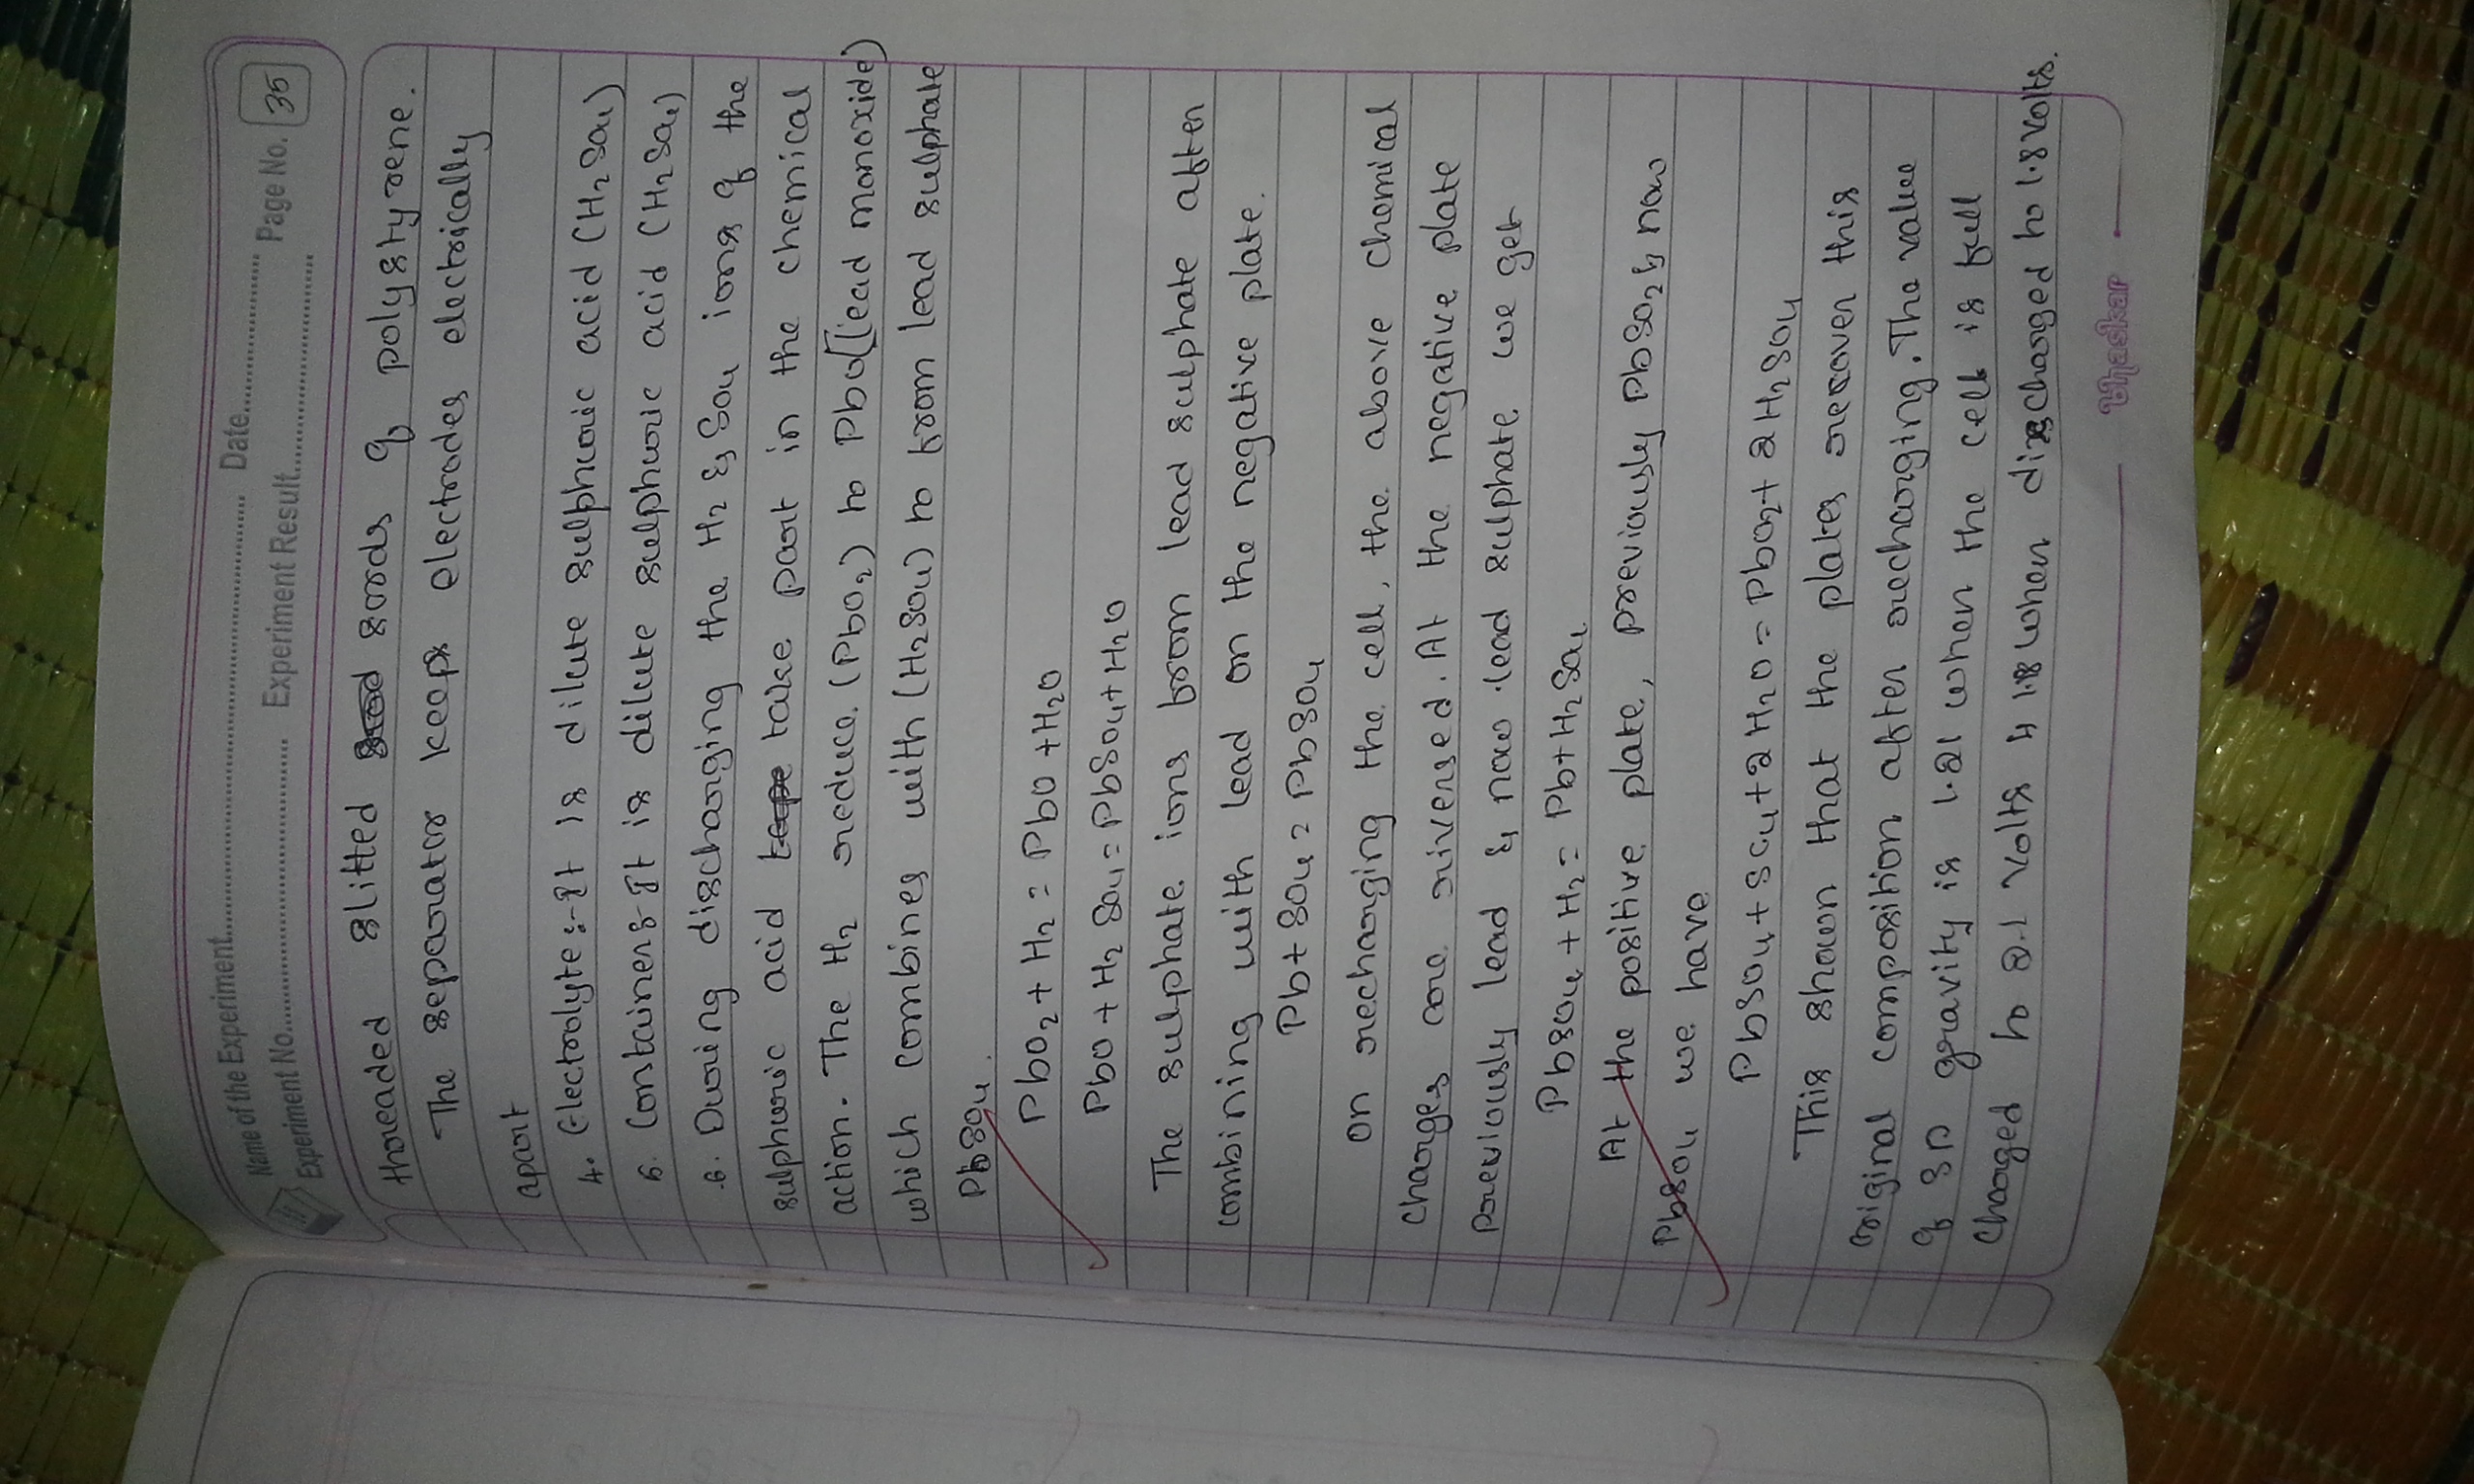 Name of the Experiment............ Date............ Page No. 35
Experiment No............ Experiment Result............
threaded slitted rods of polystyrene.
The separator keeps electrodes electrically
apart
4. Electrolyte :- It is dilute sulphuric acid (H2SO4)
5. Container :- It is dilute sulphuric acid (H2SO4)
6. During discharging the H2 & SO4 ions of the
sulphuric acid take part in the chemical
action. The H2 reduce (PbO2) to PbO (lead monoxide)
which combines with (H2SO4) to from lead sulphate
PbSO4.
PbO2 + H2 = PbO + H2O
PbO + H2SO4 = PbSO4 + H2O
The sulphate ions from lead sulphate after
combining with lead on the negative plate.
Pb + SO4 = PbSO4
On recharging the cell, the above chemical
Charges are riversed. At the negative plate
previously lead & now lead sulphate we get
PbSO4 + H2 = Pb + H2SO4
At the positive plate, previously PbSO2 & now
PbSO4 we have
PbSO4 + SO4 + 2H2O = PbO2 + 2H2SO4
This shown that the plates recover this
original composition after recharging. The value
of SP gravity is 1.21 when the cell is full
Charged to 2.1 volts & 1.18 when discharged to 1.8 volts.
bhaskar